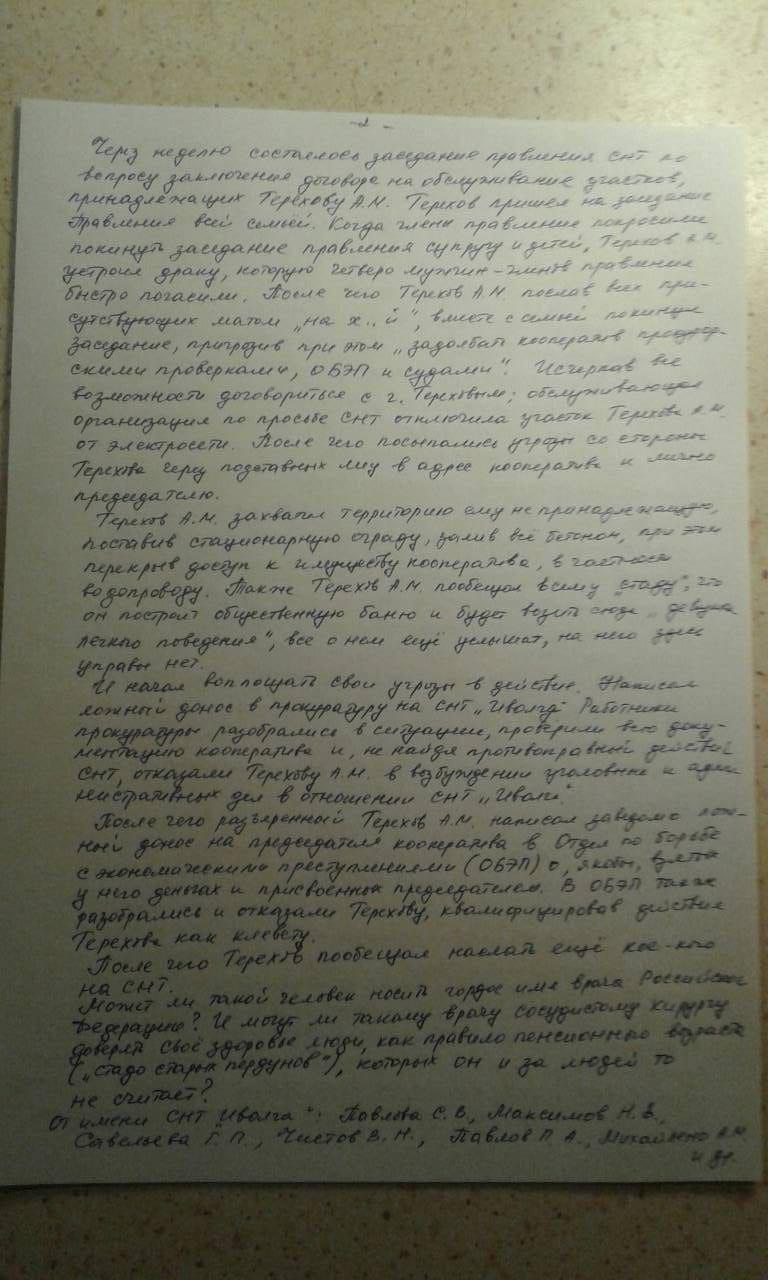 - 2 -
Через неделю состоялось заседание правления СНТ по
вопросу заключения договора на обслуживание участков,
принадлежащих Терехову А.М. Терехов пришел на заседание
правления всей семьёй. Когда члены правление попросили
покинуть заседание правления супругу и детей, Терехов А.М.
устроил драку, которую четверо мужчин-членов правления
быстро погасили. После чего Терехов А.М. послав всех при-
сутствующих матом „на х..й", вместе с семьей покинул
заседание, пригрозив при этом „задолбать кооператив
скими проверками, ОБЭП и судами". Исчерпав все
возможности договориться с г. Тереховым, обслуживающая
организация по просьбе СНТ отключила участок Терехова А.М.
от электросети. После чего посыпались угрозы со стороны
Терехова через подставных лиц в адрес кооператива и лично
председателю.
Терехов А.М. захватил территорию ему не принадлежащую,
поставив стационарную ограду, залив всё бетоном, при этом
перекрыв доступ к имуществу кооператива, в частности
водопроводу. Также Терехов А.М. пообещал всему „стаду", что
он построит общественную баню и будет возить сюда „девушек
легкого поведения", все о нем ещё услышат, на него здесь
управы нет.
И начал воплощать свои угрозы в действие. Написал
ложный донос в прокуратуру на СНТ „Иволга". Работники
прокуратуры разобрались в ситуации, проверили всю доку-
ментацию кооператива и, не найдя противоправный действий
СНТ, отказали Терехову А.М. в возбуждении уголовных и адми
нистративных дел в отношении СНТ „Иволга".
После чего разъяренный Терехов А.М. написал заведомо лож-
ный донос на председателя кооператива в Отдел по борьбе
с экономическими преступлениями (ОБЭП) о, якобы, взятых
у него деньгах и присвоенных председателем. В ОБЭП также
разобрались и отказали Терехову, квалифицировав действие
Терехова как клевету.
После чего Терехов пообещал наслать ещё кое-кого
на СНТ.
Может ли такой человек носить гордое имя врача Российской
Федерации? И могут ли такому врачу сосудистому хирургу
доверять своё здоровье люди, как правило пенсионного возраста
(„стадо старых пердунов"), которых он и за людей то
не считает?
От имени СНТ „Иволга": Павлова С.В., Максимов Н.В.,
Савельева Г.П., Чистов В.Н., Павлов П.А., Михайленко А.М.
и др.